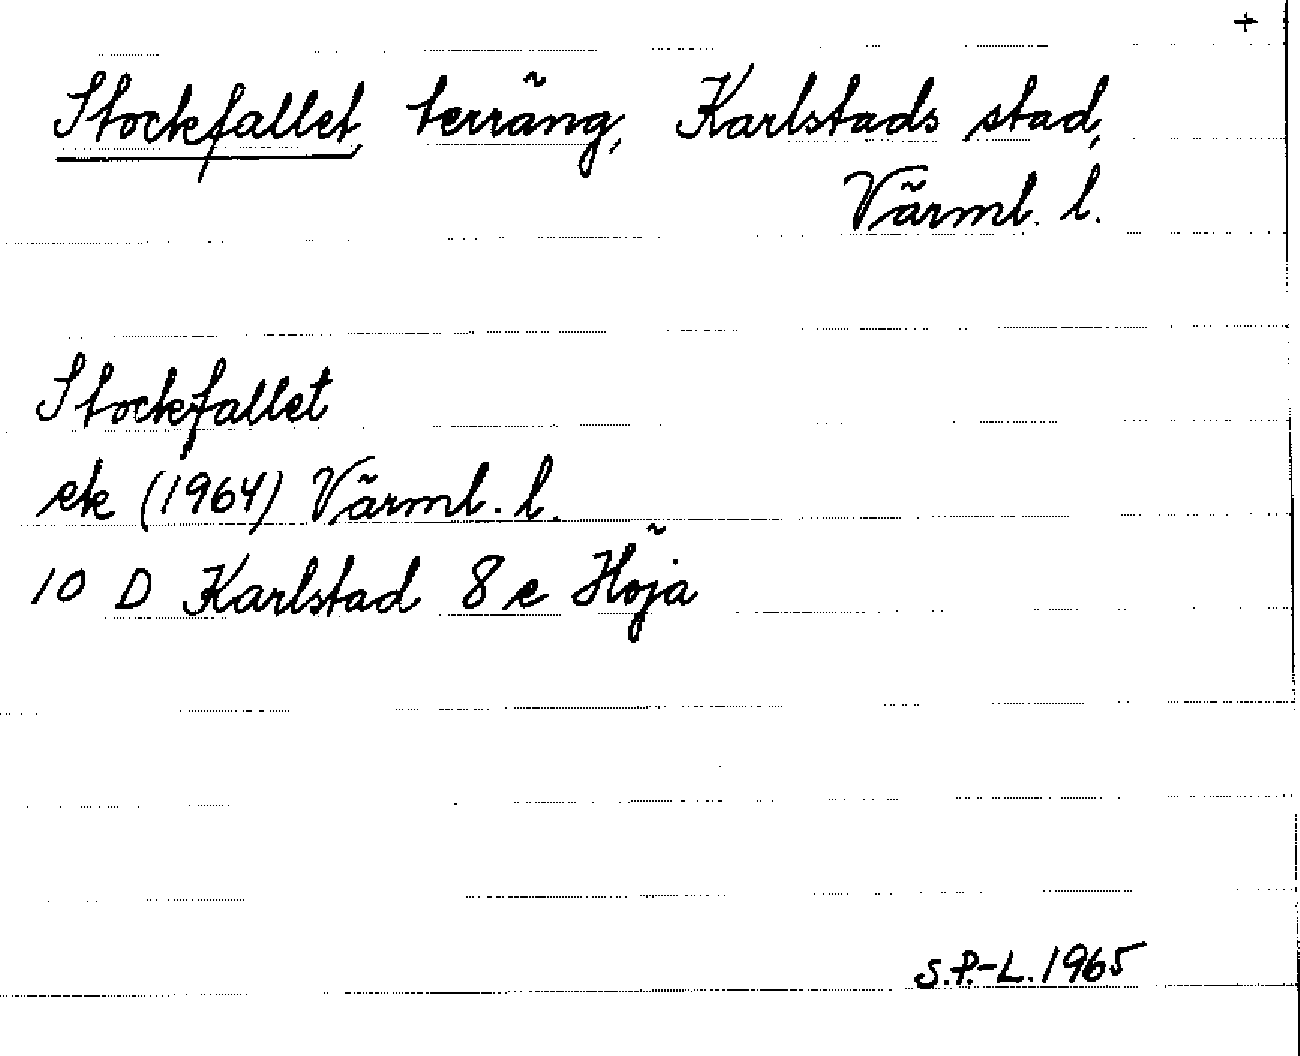 +
Stockfallet, terräng, Karlstads stad,
Värml. l.
Stockfallet
ek (1964) Värml. l.
10 D Karlstad 8 e Höja
S.P.-L. 1965